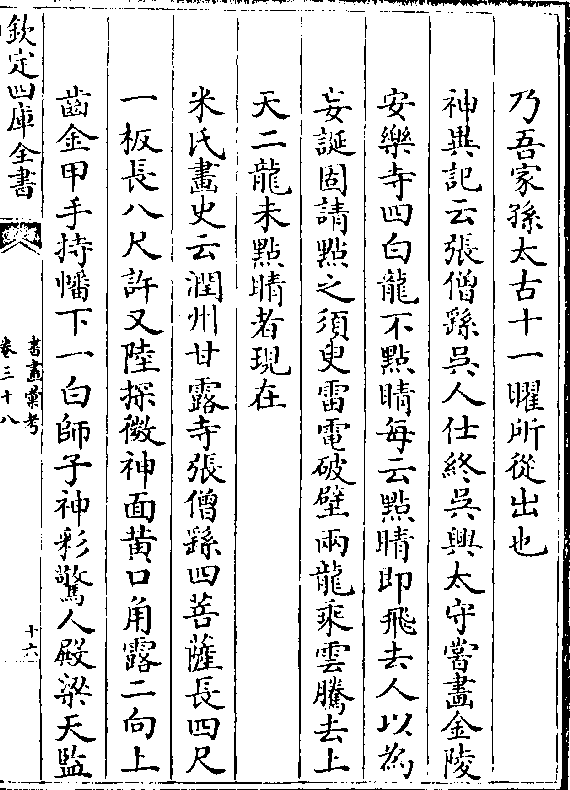 乃吾家孫太古十一曜所從出也
神異記云張僧繇吳人仕終吳興太守嘗畫金陵
安樂寺四白龍不點睛每云點睛即飛去人以為
妄誕固請點之須臾雷電破壁兩龍乘雲騰去上
天二龍未點睛者現在
米氏畫史云潤州甘露寺張僧繇四菩薩長四尺
一板長八尺許又陸探微神面黄口角露二向上
齒金甲手持幡下一白師子神彩驚人殿梁天監
欽定四庫全書
書畫彙考
卷三十八
十六